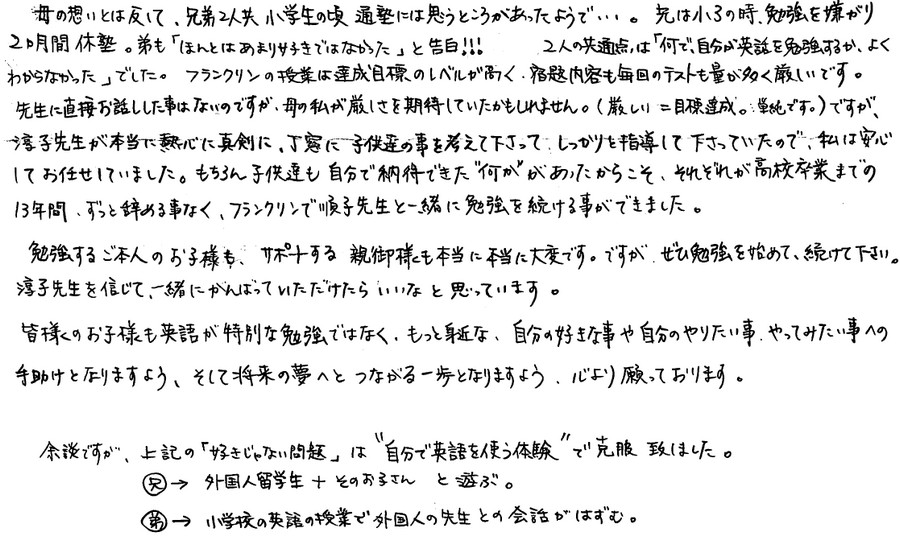 母の想いとは反して、兄弟2人共 小学生の頃 通塾には思うところがあったようで…。 兄は小3の時、勉強を嫌がり
2ヵ月間 休塾。弟も「ほんとはあまり好きではなかった」と告白!!! 2人の共通点は「何で、自分が英語を勉強するか、よく
わからなかった」でした。 フランクリンの授業は達成目標のレベルが高く、宿題内容も毎回のテストも量が多く厳しいです。
先生に直接お話しした事はないのですが、母の私が厳しさを期待していたかもしれません。(厳しい=目標達成。単純です。)ですが、
淳子先生が本当に熱心に真剣に、丁寧に 子供達の事を考えて下さって、しっかりと指導して下さっていたので、私は安心
してお任せしていました。もちろん子供達も 自分で納得できた"何か"があったからこそ、それぞれが高校卒業までの
13年間、ずっと辞める事なく、フランクリンで順子先生と一緒に勉強を続ける事ができました。
勉強するご本人のお子様も、サポートする 親御様も本当に本当に大変です。ですが、ぜひ勉強を始めて、続けて下さい。
淳子先生を信じて、一緒にがんばっていただけたら いいなと思っています。
皆様のお子様も英語が特別な勉強ではなく、もっと身近な、自分の好きな事や自分のやりたい事、やってみたい事への
手助けとなりますよう、そして将来の夢へと つながる一歩となりますよう、心より願っております。
余談ですが、上記の「好きじゃない問題」は"自分で英語を使う体験"で克服 致しました。
兄→ 外国人留学生+そのお子さん と遊ぶ。
弟→ 小学校の英語の授業で外国人の先生との会話がはずむ。